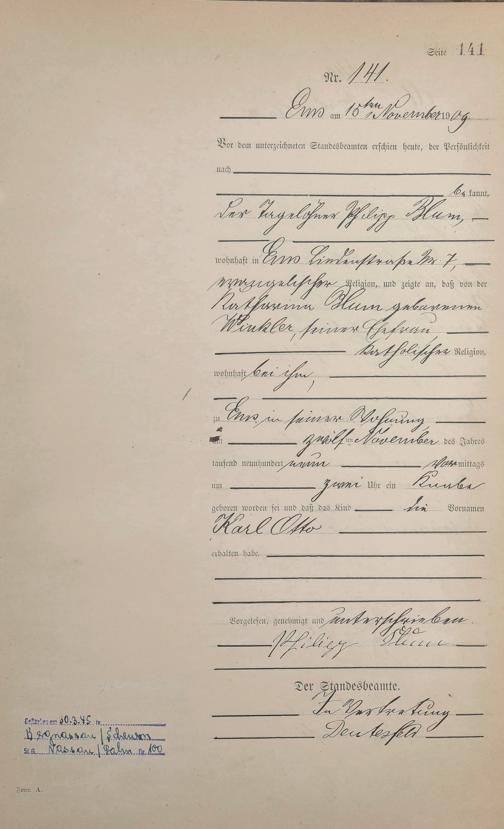 Seite 141
Nr. 141.
Ems am 15ten November 1909
Vor dem unterzeichneten Standesbeamten erschien heute, der Persönlichkeit
nach
be kannt,
der Tagelöhner Philipp Blum,
wohnhaft in Ems Lindenstraße Nr 7,
evangelischer Religion, und zeigte an, daß von der
Katharina Blum geborenen
Winkler, seiner Ehefrau
katholischer Religion,
wohnhaft bei ihm,
zu Ems, in seiner Wohnung
am zwölften November des Jahres
tausend neunhundert neun Vormittags
um zwei Uhr ein Knabe
geboren worden sei und daß das Kind die Vornamen
Karl Otto
erhalten habe.
Vorgelesen, genehmigt und unterschrieben.
Philipp Blum
Der Standesbeamte.
In Vertretung
Gestorben am 30.3.45 in
Bergnassau/Scheuern
Sta. Nassau/Lahn Nr. 100
Form. A.